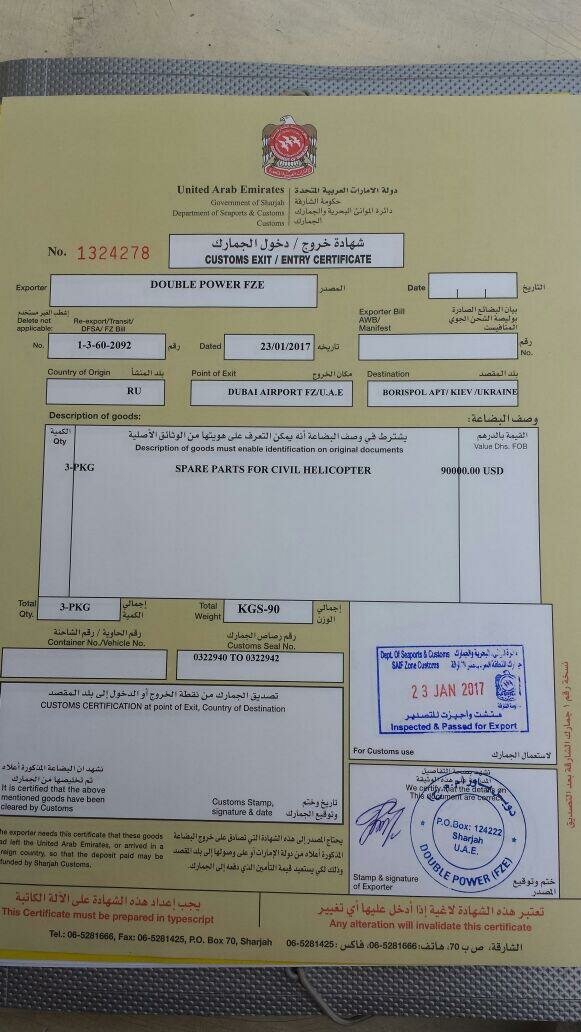 United Arab Emirates
Government of Sharjah
Department of Seaports & Customs
Customs
دولة الامارات العربية المتحدة
حكومة الشارقة
دائرة الموانئ البحرية والجمارك
الجمارك
No. 1324278
شهادة خروج / دخول الجمارك
CUSTOMS EXIT / ENTRY CERTIFICATE
Exporter DOUBLE POWER FZE المصدر
Date التاريخ
إشطب الغير مستخدم
Delete not applicable:
Re-export/Transit/
DFSA/ FZ Bill
No. 1-3-60-2092 رقم
Dated 23/01/2017 تاريخه
Exporter Bill
AWB/
Manifest
بيان البضائع الصادرة
بوليصة الشحن الجوي
المنافيست
رقم
No.
Country of Origin بلد المنشأ
RU
Point of Exit مكان الخروج
DUBAI AIRPORT FZ/U.A.E
Destination بلد المقصد
BORISPOL APT/ KIEV /UKRAINE
Description of goods: وصف البضاعة:
الكمية
Qty
يشترط في وصف البضاعة أنه يمكن التعرف على هويتها من الوثائق الأصلية
Description of goods must enable identification on original documents
القيمة بالدرهم
Value Dhs. FOB
3-PKG SPARE PARTS FOR CIVIL HELICOPTER 90000.00 USD
Total
Qty. 3-PKG إجمالي
الكمية
Total
Weight KGS-90 إجمالي
الوزن
رقم الحاوية / رقم الشاحنة
Container No./Vehicle No.
رقم رصاص الجمارك
Customs Seal No.
0322940 TO 0322942
تصديق الجمارك من نقطة الخروج أو الدخول إلى بلد المقصد
CUSTOMS CERTIFICATION at point of Exit, Country of Destination
نشهد ان البضاعة المذكورة أعلاه
تم تخليصها من الجمارك
It is certified that the above
mentioned goods have been
cleared by Customs
Customs Stamp,
signature & date
تاريخ وختم
وتوقيع الجمارك
Dept. Of Seaports & Customs
SAIF Zone Customs
23 JAN 2017
فتشت وأجيزت للتصدير
Inspected & Passed for Export
For Customs use لاستعمال الجمارك
نشهد بصحة التفاصيل
We certify that the details on
This document are correct
P.O.Box: 124222
Sharjah
U.A.E.
DOUBLE POWER (FZE)
Stamp & signature
of Exporter
ختم وتوقيع
المصدر
he exporter needs this certificate that these goods
ad left the United Arab Emirates, or arrived in a
reign country, so that the deposit paid may be
funded by Sharjah Customs.
يحتاج المصدر إلى هذه الشهادة التي تصادق على خروج البضاعة
المذكورة أعلاه من دولة الإمارات أو على وصولها إلى بلد المقصد
وذلك لكي يستعيد قيمة التأمين الذي دفعه إلى الجمارك.
نسخة رقم ١ جمارك الشارقة بعد التصديق
يجب إعداد هذه الشهادة على الآلة الكاتبة
This Certificate must be prepared in typescript
تعتبر هذه الشهادة لاغية إذا أدخل عليها أي تغيير
Any alteration will invalidate this certificate
Tel.: 06-5281666, Fax: 06-5281425, P.O. Box 70, Sharjah
الشارقة، ص ب ٧٠، هاتف: 5281666-06، فاكس: 5281425-06